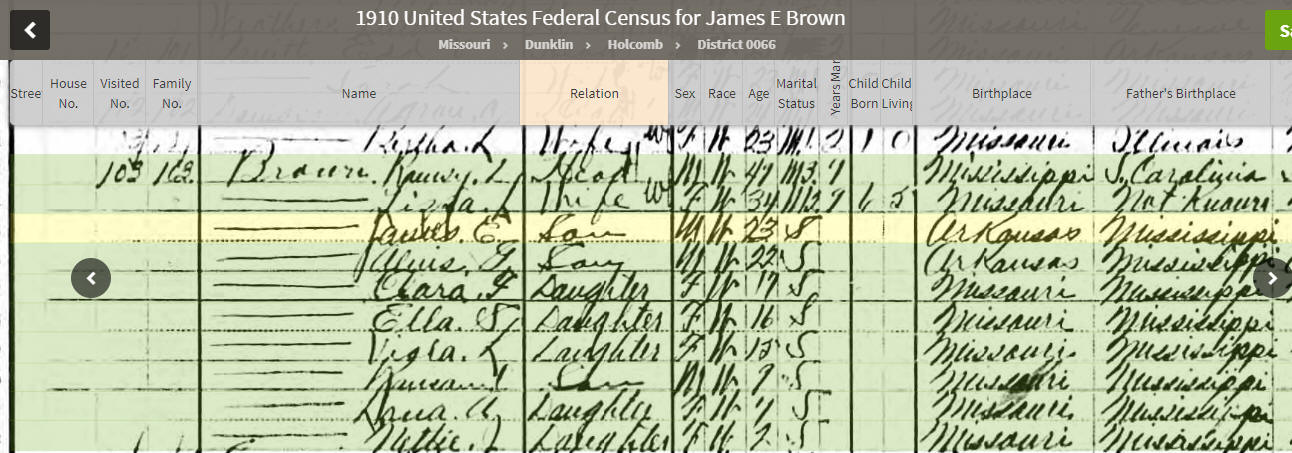 1910 United States Federal Census for James E Brown
Missouri › Dunklin › Holcomb › District 0066
Stree House No. Visited No. Family No. Name Relation Sex Race Age Marital Status Years Mar Child Born Child Living Birthplace Father's Birthplace
Sa
Wife W F W 23 M1 2 1 0 Missouri Illinois
103 Brown. L Head M W 47 M3 9 Mississippi S. Carolina
Wife W F W 34 9 6 5 Missouri Not Known
James. E Son M W 23 S Arkansas Mississippi
Son M W 22 S Arkansas Mississippi
Clara. F Daughter F W 17 S Missouri Mississippi
Ella. Daughter F W 16 S Missouri Mississippi
L Daughter F W S Missouri Mississippi
Son M W 9 S Missouri Mississippi
Daughter F W S Missouri Mississippi
Nettie. Daughter F W 2 S Missouri Mississippi